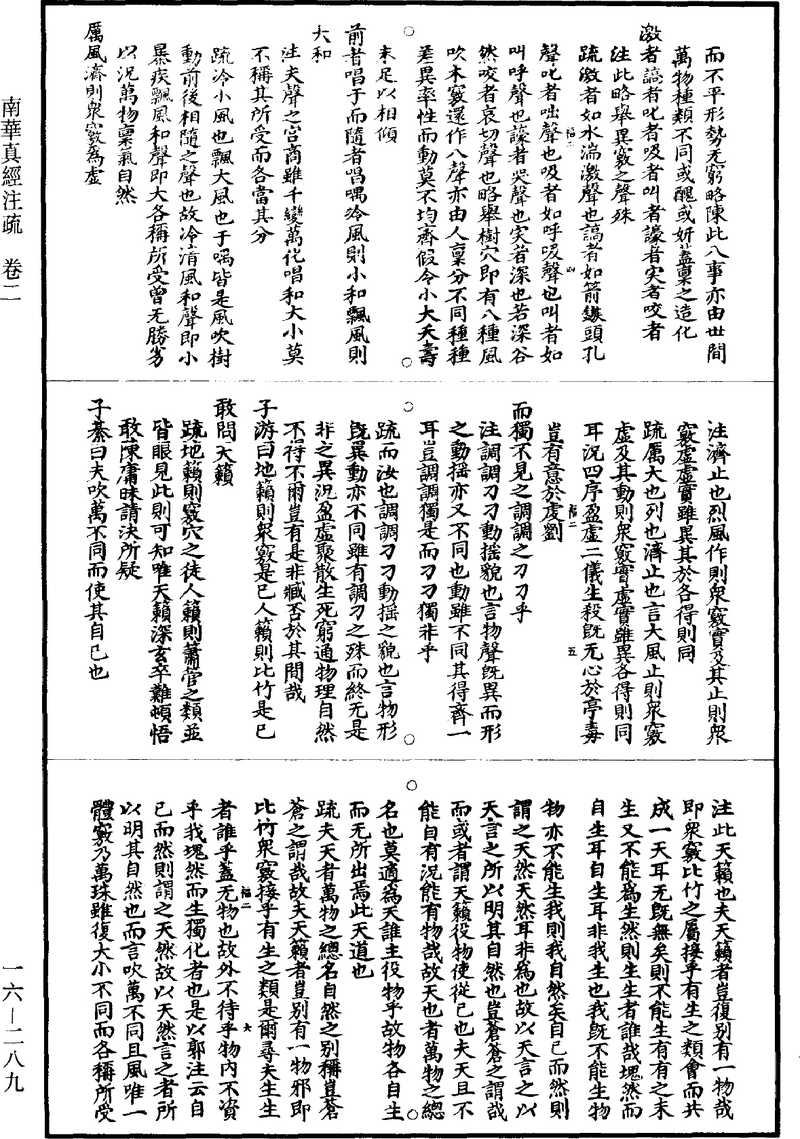 南華真經注疏　卷二
一六—二八九
而不平形勢无窮略陳此八事亦由世間
萬物種類不同或醜或妍蓋稟之造化
激者謞者叱者吸者叫者譹者宎者咬者
注此略舉異竅之聲殊
疏激者如水湍激聲也謞者如箭鏃頭孔
聲叱者咄聲也吸者如呼吸聲也叫者如
叫呼聲也譹者哭聲也宎者深也若深谷
然咬者哀切聲也略舉樹穴即有八種風
吹木竅還作八聲亦由人稟分不同種種
差異率性而動莫不均齊假令小大夭壽
未足以相傾
前者唱于而隨者唱喁泠風則小和飄風則
大和
注夫聲之宮商雖千變萬化唱和大小莫
不稱其所受而各當其分
疏泠小風也飄大風也于喁皆是風吹樹
動前後相隨之聲也故泠清風和聲即小
暴疾飄風和聲即大各稱所受曾无勝劣
以況萬物稟氣自然
厲風濟則衆竅為虛
注濟止也烈風作則衆竅實及其止則衆
竅虛虛實雖異其於各得則同
疏厲大也烈也濟止也言大風止則衆竅
虛及其動則衆竅實虛實雖異各得則同
耳況四序盈虛二儀生殺既无心於亭毒
豈有意於虔劉
而獨不見之調調之刁刁乎
注調調刁刁動搖貌也言物聲既異而形
之動搖亦又不同也動雖不同其得齊一
耳豈調調獨是而刁刁獨非乎
疏而汝也調調刁刁動搖之貌也言物形
既異動亦不同雖有調刁之殊而終无是
非之異況盈虛聚散生死窮通物理自然
不得不爾豈有是非臧否於其間哉
子游曰地籟則衆竅是已人籟則比竹是已
敢問天籟
疏地籟則竅穴之徒人籟則簫管之類並
皆眼見此則可知唯天籟深玄卒難頓悟
敢陳庸昧請決所疑
子綦曰夫吹萬不同而使其自己也
注此天籟也夫天籟者豈復別有一物哉
即衆竅比竹之屬接乎有生之類會而共
成一天耳无既無矣則不能生有有之未
生又不能為生然則生生者誰哉塊然而
自生耳自生耳非我生也我既不能生物
物亦不能生我則我自然矣自己而然則
謂之天然天然耳非為也故以天言之以
天言之所以明其自然也豈蒼蒼之謂哉
而或者謂天籟役物使從己也夫天且不
能自有況能有物哉故天也者萬物之總
名也莫適為天誰主役物乎故物各自生
而无所出焉此天道也
疏夫天者萬物之總名自然之別稱豈蒼
蒼之謂哉故夫天籟者豈別有一物邪即
比竹衆竅接乎有生之類是爾尋夫生生
者誰乎蓋无物也故外不待乎物內不資
乎我塊然而生獨化者也是以郭注云自
己而然則謂之天然故以天然言之者所
以明其自然也而言吹萬不同且風唯一
體竅乃萬殊雖復大小不同而各稱所受